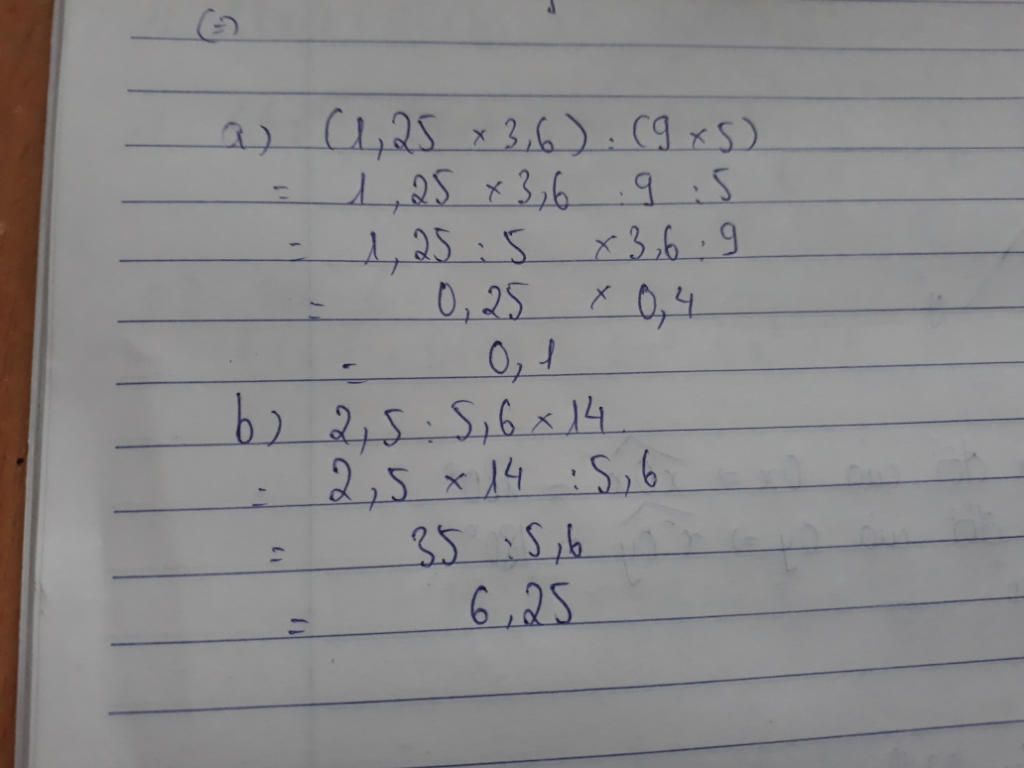 (=)
a) (1,25 × 3,6) : (9 × 5)
= 1,25 × 3,6 : 9 : 5
= 1,25 : 5 × 3,6 : 9
= 0,25 × 0,4
= 0,1
b) 2,5 : 5,6 × 14
= 2,5 × 14 : 5,6
= 35 : 5,6
= 6,25